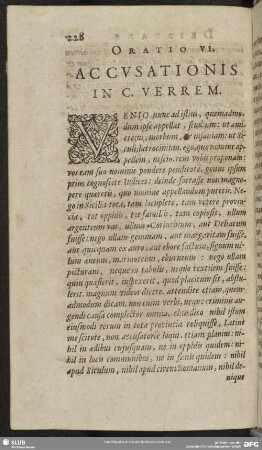 228
ORATIO VI.
ACCVSATIONIS
IN C. VERREM.
VENIO nunc ad istius, quemadmo-
dum ipse appellat, studium: ut ami-
ci ejus, morbum, & insaniam: ut Si-
culi, latrocinium. ego, quo nomine ap-
pellem, nescio. rem vobis proponam:
vos eam suo nominis pondere penditote. genus ipsum
prius cognoscite Iudices: deinde fortasse non magno-
pere quæretis, quo nomine appellandum putetis. Ne-
go in Sicilia tota, tam locuplete, tam vetere provin-
cia, tot oppidis, tot familiis, tam copiosis, ullum
argenteum vas, ullum Corinthium, aut Deliacum
fuisse: nego ullam gemmam, aut margaritam fuisse,
aut quicquam ex auro, aut ebore factum, signum ul-
lum æneum, marmoreum, eburneum: nego ullam
picturam, neque in tabulis, neque textilem fuisse:
quin quæsierit, inspexerit, quod placitum sit, abstu-
lerit. magnum videor dicere. attendite etiam, quem-
admodum dicam. non enim verbi, neque criminis au-
gendi causa complector omnia. cùm dico nihil istum
ejusmodi rerum in tota provincia reliquisse, Latinè
me scitote, non accusatoriè loqui. etiam planius: ni-
hil in ædibus cujusquam, ne in oppidis quidem: ni-
hil in locis communibus, ne in fanis quidem: nihil
apud Siculum, nihil apud civem Romanum, nihil de-
nique
SLUB